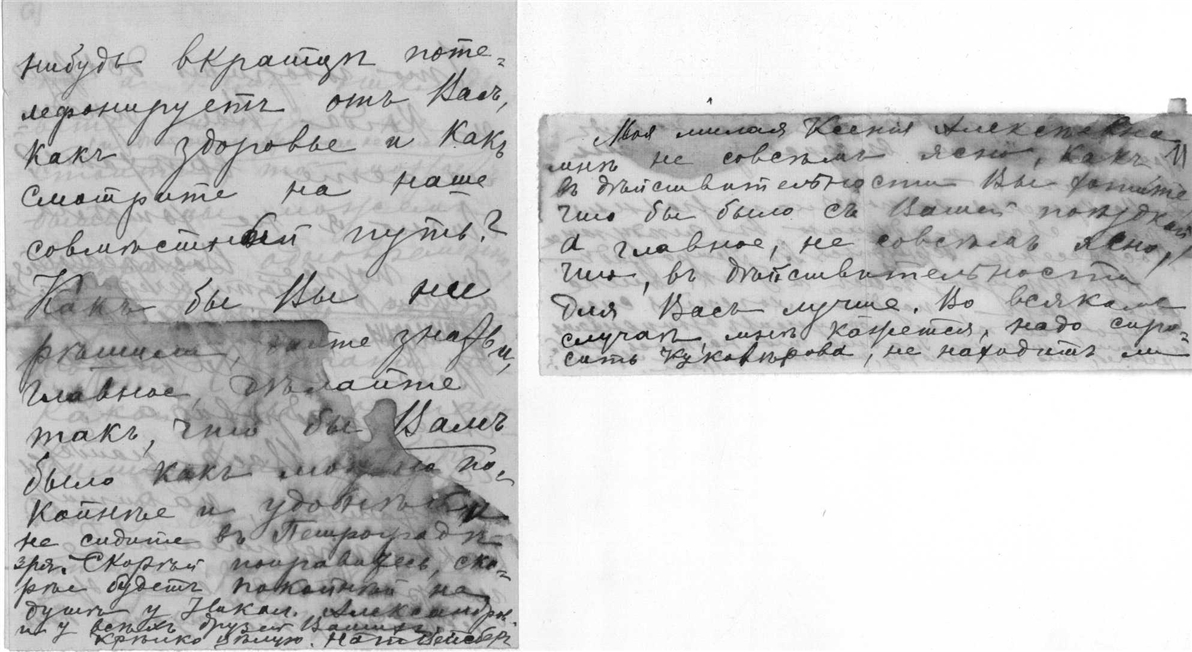 нибудь вкратцѣ поте-
лефонируетъ отъ Васъ,
какъ здоровье и какъ
смотрите на наше
совмѣстный путь?
Какъ бы Вы ни
рѣшили, дайте знать и,
главное, дѣлайте
такъ, что бы Вамъ
было какъ можно по-
койнѣе и удобнѣе и
не сидите въ Петроградѣ
зря. Скорѣй поправитесь, ско-
рѣе будетъ покойнѣй на
душѣ у Никол. Александров.
и у всѣхъ друзей Вашихъ.
Крѣпко цѣлую.
Моя милая Ксенія Алексѣевна
мнѣ не совсѣмъ ясно, какъ
въ дѣйствительности Вы хотите,
что бы было съ Вашей поѣздкой,
а главное, не совсѣмъ ясно,
что, въ дѣйствительности
для Васъ лучше. Во всякомъ
случаѣ, мнѣ кажется, надо спро-
сить, не находитъ ли